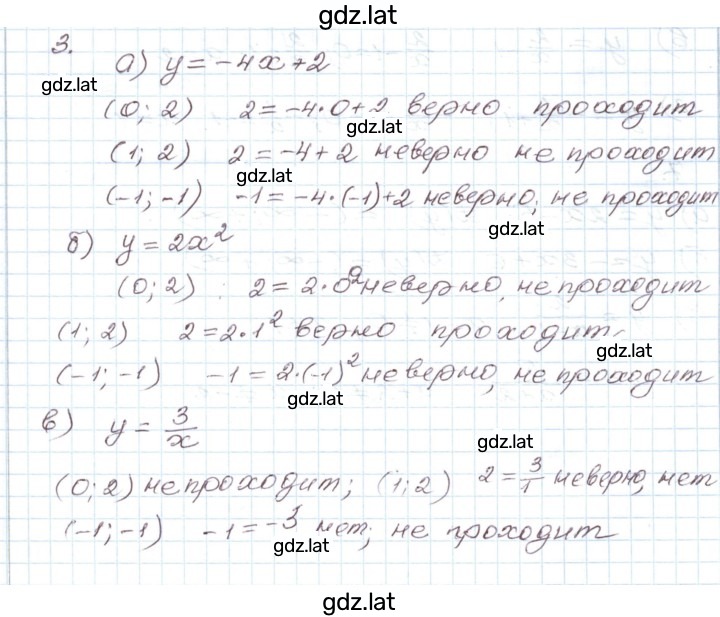 gdz.lat
3.
а) y = -4x+2
gdz.lat
(0; 2) 2 = -4·0+2 верно проходит
gdz.lat
(1; 2) 2 = -4+2 неверно не проходит
gdz.lat
(-1; -1) -1 = -4·(-1)+2 неверно, не проходит
gdz.lat
б) y = 2x²
(0; 2) 2 = 2·0² неверно, не проходит
(1; 2) 2 = 2·1² верно проходит
gdz.lat
(-1; -1) -1 = 2·(-1)² неверно, не проходит
gdz.lat
в) y = 3/x
gdz.lat
(0; 2) не проходит; (1; 2) 2 = 3/1 неверно, нет
(-1; -1) -1 = -3 нет, не проходит
gdz.lat
gdz.lat